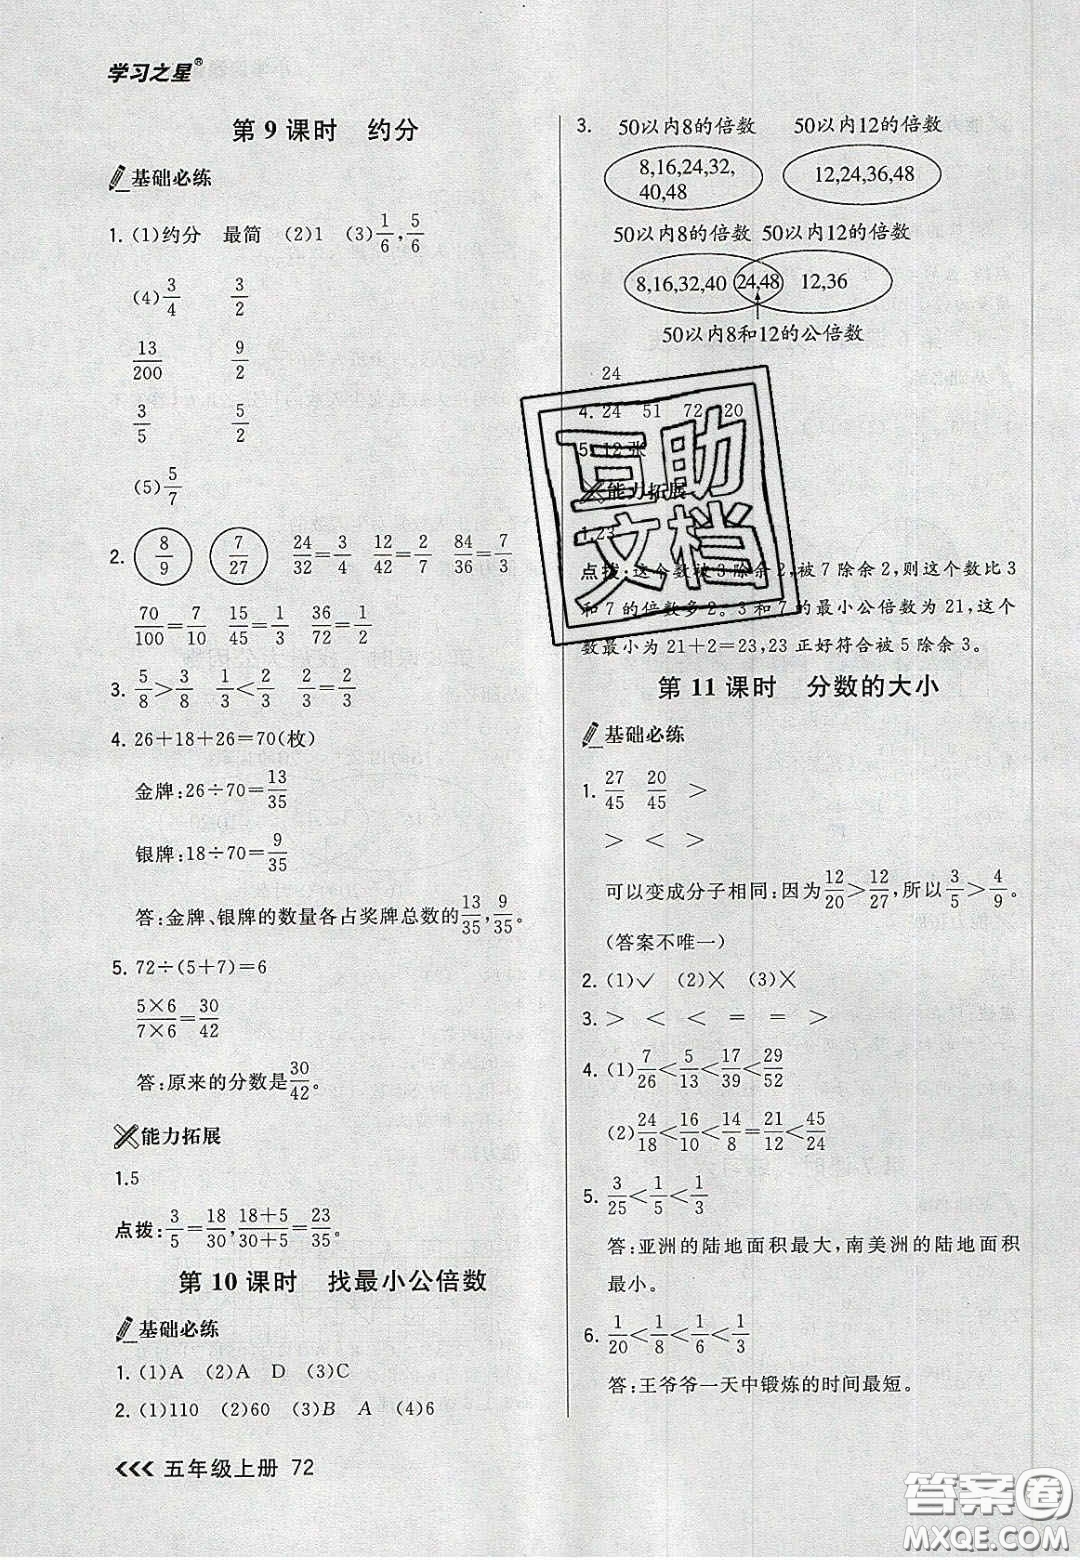 学习之星®
第 9 课时　约分
基础必练
1. (1)约分　最简　(2)1　(3)1/6,5/6
(4)3/4　3/2
13/200　9/2
3/5　5/2
(5)5/7
2. 8/9　7/27　24/32=3/4　12/42=2/7　84/36=7/3
70/100=7/10　15/45=1/3　36/72=1/2
3. 5/8>3/8　1/3<2/3　2/3=2/3
4. 26+18+26=70(枚)
金牌:26÷70=13/35
银牌:18÷70=9/35
答:金牌、银牌的数量各占奖牌总数的13/35,9/35。
5. 72÷(5+7)=6
5×6/7×6=30/42
答:原来的分数是30/42。
能力拓展
1.5
点拨:3/5=18/30,18+5/30+5=23/35。
第 10 课时　找最小公倍数
基础必练
1. (1)A　(2)A　D　(3)C
2. (1)110　(2)60　(3)B　A　(4)6
五年级上册　72
3. 50以内8的倍数　50以内12的倍数
8,16,24,32,　12,24,36,48
40,48
50以内8的倍数　50以内12的倍数
8,16,32,40　24,48　12,36
50以内8和12的公倍数
24
4. 24　51　72　20
5. 12 张
能力拓展
1.23
点拨:这个数被 3 除余 2,被 7 除余 2,则这个数比 3
和 7 的倍数多 2。3 和 7 的最小公倍数为 21,这个
数最小为 21+2=23,23 正好符合被 5 除余 3。
第 11 课时　分数的大小
基础必练
1. 27/45　20/45　>
>　<　>
可以变成分子相同:因为12/20>12/27,所以3/5>4/9。
(答案不唯一)
2. (1)✓　(2)×　(3)×
3. >　<　<　=　=　>
4. (1)7/26<5/13<17/39<29/52
(2)24/18<16/10<14/8=21/12<45/24
5. 3/25<1/5<1/3
答:亚洲的陆地面积最大,南美洲的陆地面积
最小。
6. 1/20<1/8<1/6<1/3
答:王爷爷一天中锻炼的时间最短。
互助
文档
答案圈
MXQE.COM